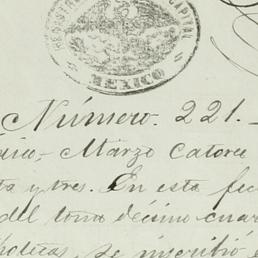 MEXICO
Número. 221.
Marzo catorce
y tres. En esta fec
del tomo décimo cuar
se inscribió